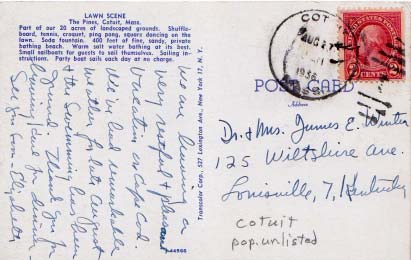 LAWN SCENE
The Pines, Cotuit, Mass.
Part of our 20 acres of landscaped grounds. Shuffle-
board, tennis, croquet, ping pong, square dancing on
lawn. Soda fountain. 400 feet of fine, sandy, private
bathing beach. Warm salt water bathing at its best.
Small sailboats for guests to sail themselves. Sailing in-
structions. Party boat sails each day at no charge.
We are having a
very restful & pleasant
vacation on Cape Cod.
We've had remarkable
weather for late August
& the swimming has been
Thank you for
for dinner.
See you soon - Elizabeth
Transcolor Corp., 527 Lexington Ave., New York 17, N. Y.
COTUIT
AUG 27
1956
MASS
UNITED STATES POSTAGE
2 CENTS 2
POST CARD
Address
Dr. & Mrs. James E. Winter
125 Wiltshire Ave.
Louisville, 7, Kentucky
cotuit
pop. unlisted